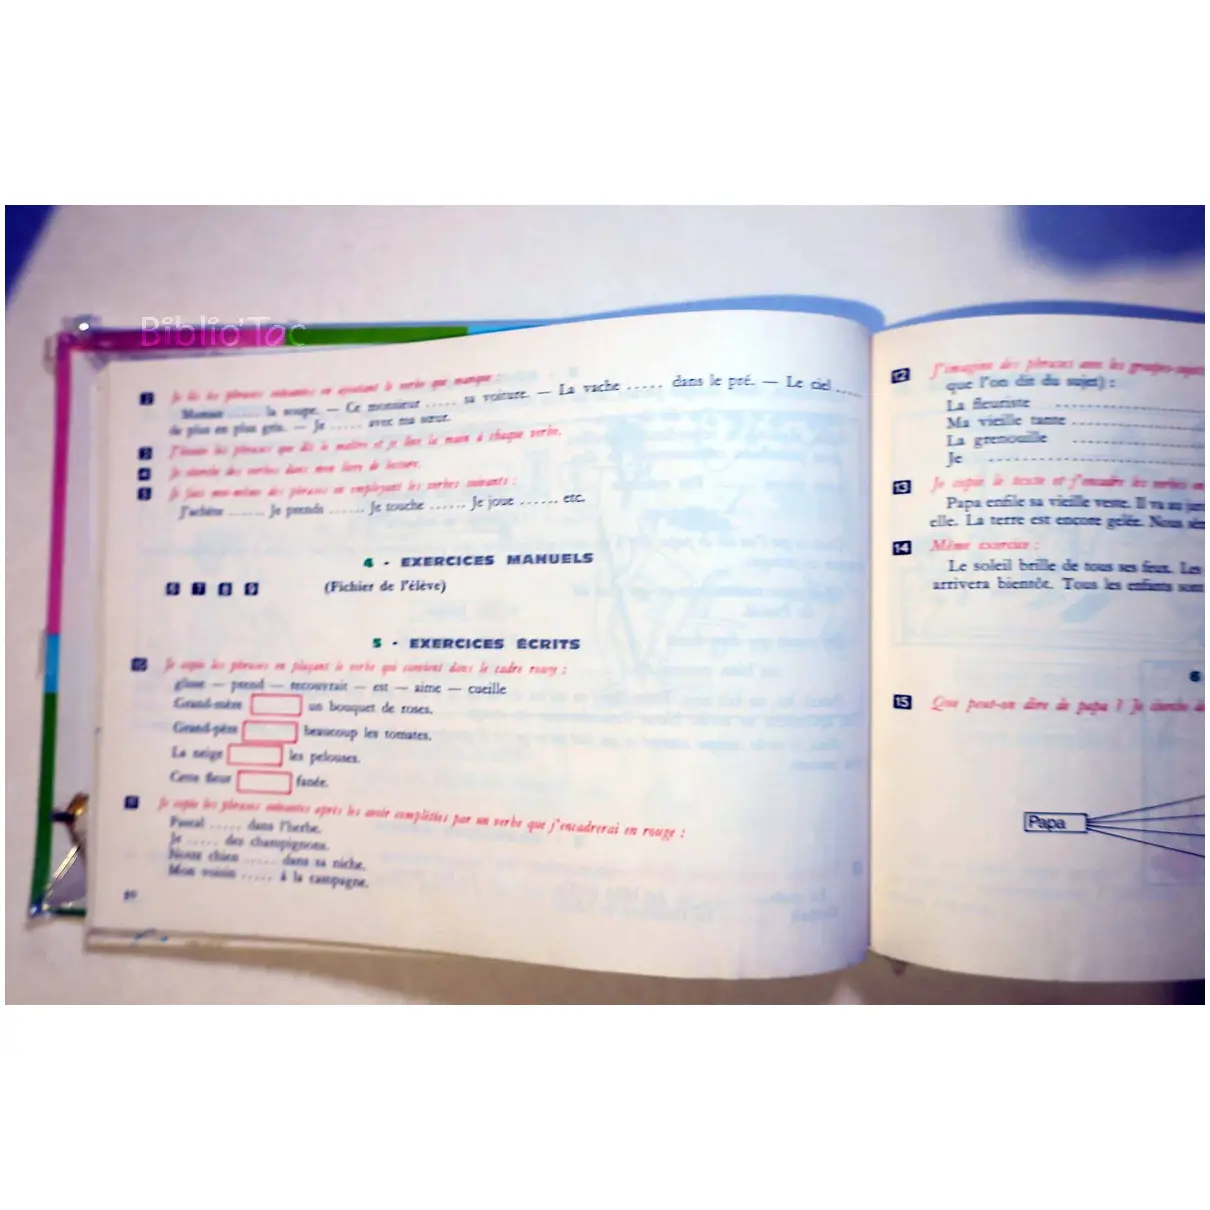 Biblio'Toc
2 Je lis les phrases suivantes en ajoutant le verbe qui manque :
Maman ...... la soupe. — Ce monsieur ..... sa voiture. — La vache ..... dans le pré. — Le ciel ....
de plus en plus gris. — Je ..... avec ma sœur.
3 J'écoute les phrases que dit le maître et je lève la main à chaque verbe.
4 Je cherche des verbes dans mon livre de lecture.
5 Je fais moi-même des phrases en employant les verbes suivants :
J'achète ....... Je prends ...... Je touche ...... Je joue ...... etc.
4 - EXERCICES MANUELS
6 7 8 9 (Fichier de l'élève)
5 - EXERCICES ÉCRITS
10 Je copie les phrases en plaçant le verbe qui convient dans le cadre rouge :
glisse — prend — recouvrait — est — aime — cueille
Grand-mère un bouquet de roses.
Grand-père beaucoup les tomates.
La neige les pelouses.
Cette fleur fanée.
11 Je copie les phrases suivantes après les avoir complétées par un verbe que j'encadrerai en rouge :
Pascal ..... dans l'herbe.
Je ..... des champignons.
Notre chien ..... dans sa niche.
Mon voisin ..... à la campagne.
90
12 J'imagine des phrases avec les groupes-sujets
que l'on dit du sujet) :
La fleuriste
Ma vieille tante
La grenouille
Je
13 Je copie le texte et j'encadre les verbes en
Papa enfile sa vieille veste. Il va au
elle. La terre est encore gelée. Nous
14 Même exercice :
Le soleil brille de tous ses feux. Les
arrivera bientôt. Tous les enfants sont
6
15 Que peut-on dire de papa ? Je cherche
Papa